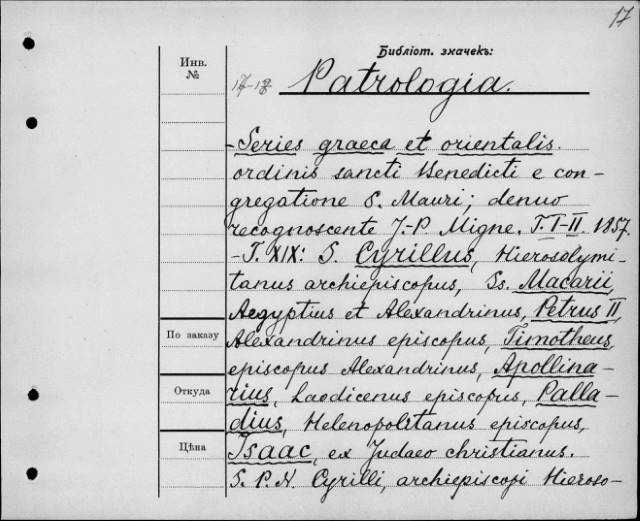 17
Библіот. значекъ:
Инв.
№
17-18 Patrologia.
-Series graeca et orientalis.
ordinis sancti Benedicti e con-
gregatione S. Mauri; denuo
recognoscente J.-P. Migne. T. I-II. 1857.
-T. XIX: S. Cyrillus, Hierosolymi-
tanus archiepiscopus, Ss. Macarii,
Aegyptius et Alexandrinus, Petrus II,
По заказу
Alexandrinus episcopus, Timotheus,
episcopus Alexandrinus, Apollina-
Откуда
rius, Laodicenus episcopus, Palla-
dius, Helenopolitanus episcopus,
Цѣна
Isaac, ex Judaeo christianus.
S. P. N. Cyrilli, archiepiscopi Hieroso-